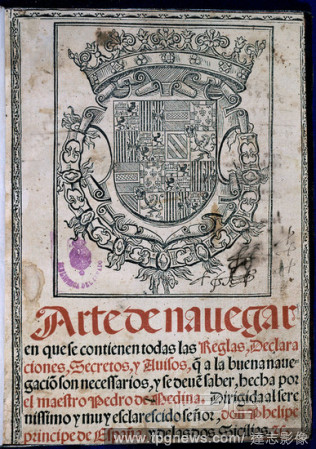 Arte de nauegar
en que se contienen todas las Reglas, Declara
ciones, Secretos, y Auisos, q̃ a la buena naue
gaciõ son necessarios, y se deuẽ saber, hecha por
el maestro Pedro de Medina. Dirigida al sere
nissimo y muy esclarescido señor, don Phelipe
principe de España, y delas dos Sicilias.
www.tpgnews.com 達志影像